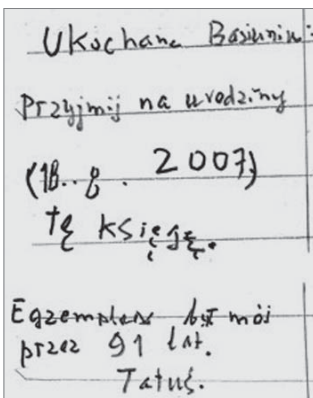 Ukochana Basiuniu:
Przyjmij na urodziny
(18. 8. 2007)
tę księgę.
Egzemplarz był mój
przez 91 lat.
Tatuś.